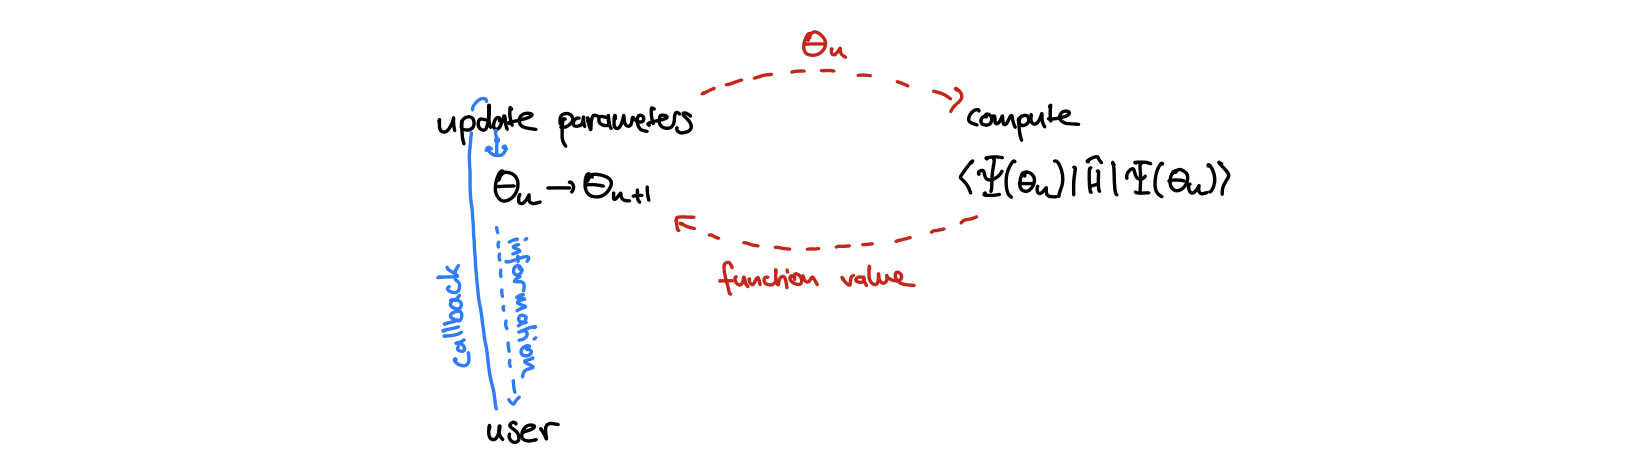 θn
update parameters
compute
θn → θn+1
⟨Ψ(θn)|Ĥ|Ψ(θn)⟩
function value
callback
information
user